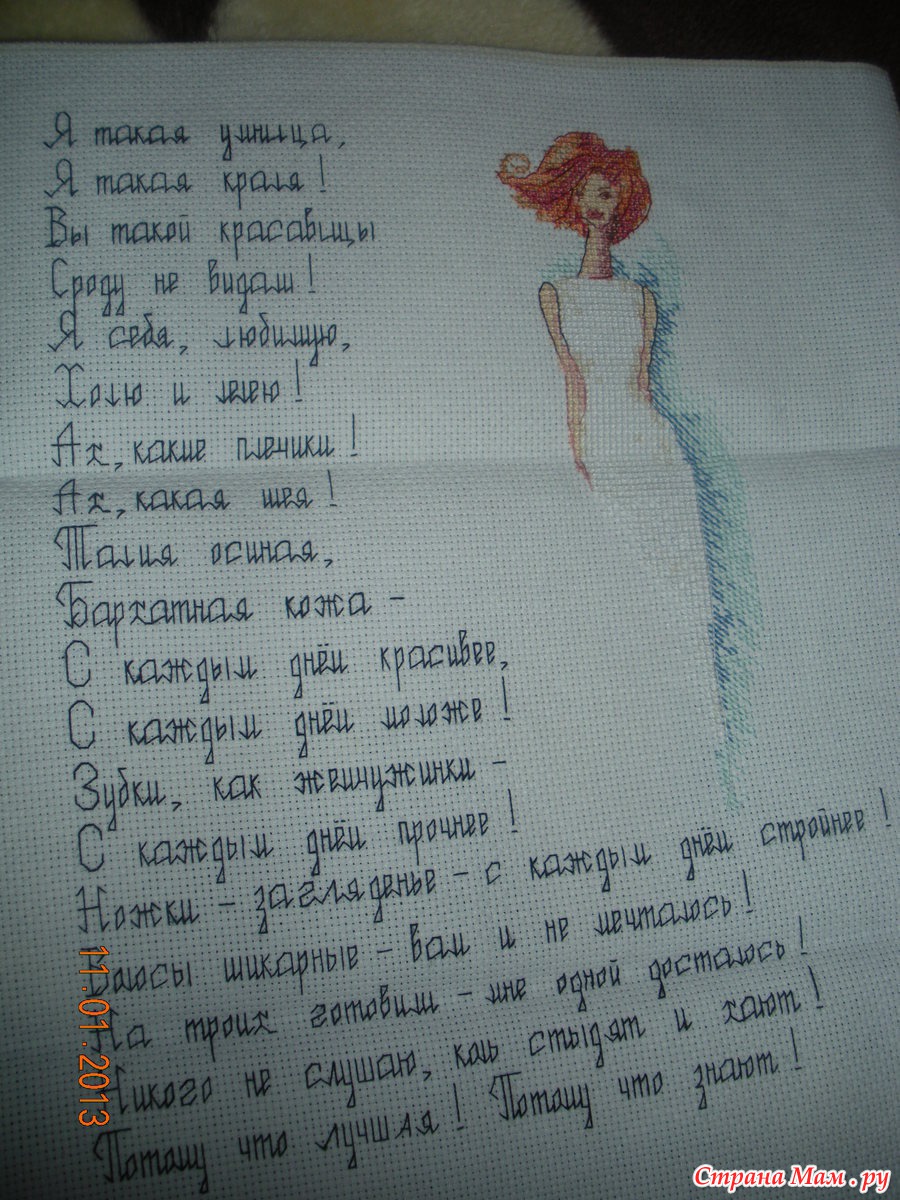 Я такая умница,
Я такая краля!
Вы такой красавицы
Сроду не видали!
Я себя, любимую,
Холю и лелею!
Ах, какие плечики!
Ах, какая шея!
Талия осиная,
Бархатная кожа -
С каждым днём красивее,
С каждым днём моложе!
Зубки, как жемчужинки -
С каждым днём прочнее!
Ножки - загляденье - с каждым днём стройнее!
Волосы шикарные - вам и не мечталось!
На троих готовили - мне одной досталось!
Никого не слушаю, коль стыдят и хают!
Потому что лучшая! Потому что знают!
11.01.2013
Страна Мам.ру